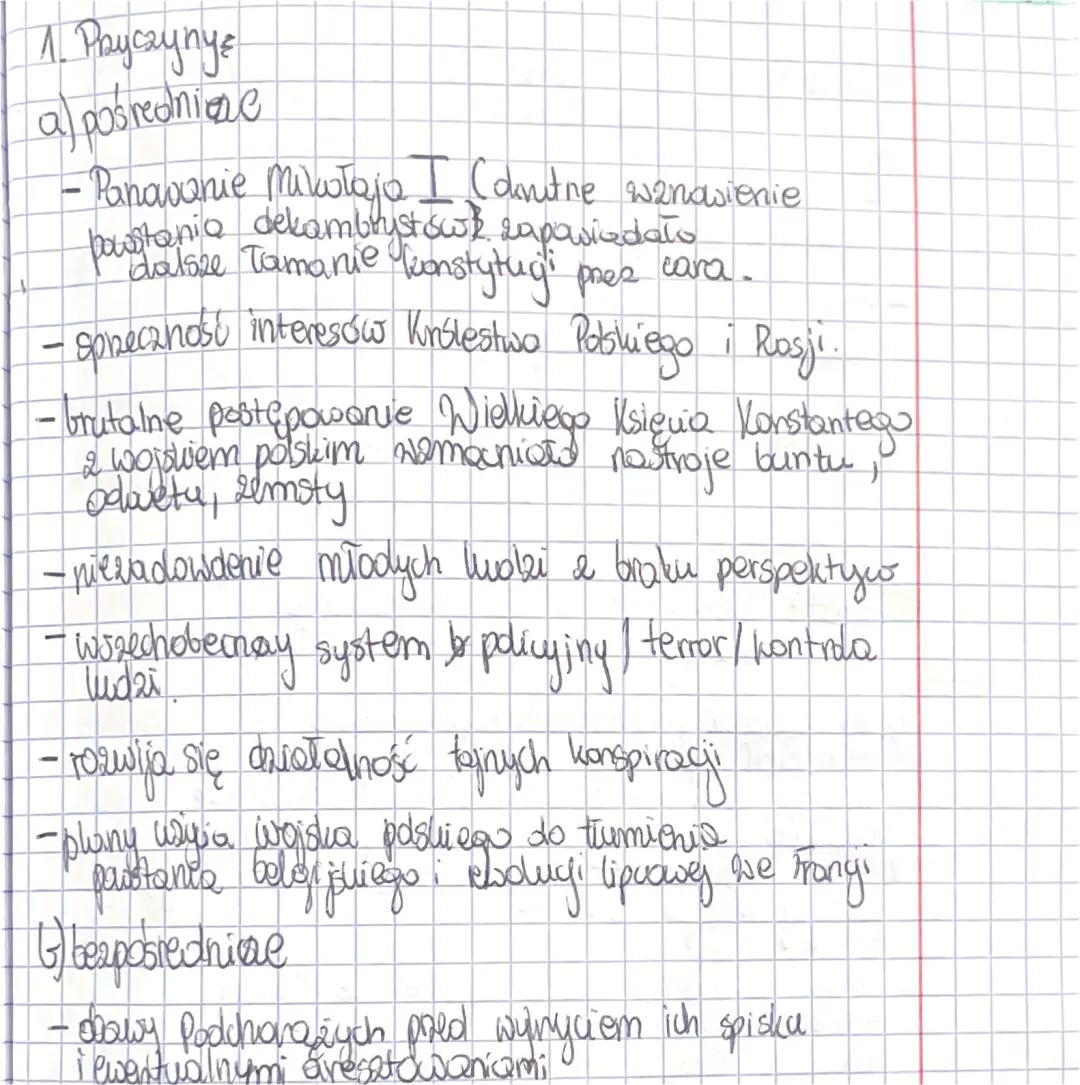 1. Przyczyny:
a) pośrednie
- Panowanie Mikołaja I (okrutne wznowienie
powstania dekambrystów) zapowiadało
dalsze łamanie konstytucji przez cara.
- sprzeczność interesów Królestwa Polskiego i Rosji.
- brutalne postępowanie Wielkiego Księcia Konstantego
z wojskiem polskim wzmacniało nastroje buntu,
odwetu, zemsty
- niezadowolenie młodych ludzi z braku perspektyw
- wszechobecnay system policyjny / terror / kontrola
ludzi.
- rozwija się działalność tajnych konspiracji
- plany użycia wojska polskiego do tłumienia
powstania belgijskiego i rewolucji lipcowej we Francji
b) bezpośrednie
- obawy Podchorążych przed wykryciem ich spisku
i ewentualnymi aresztowaniami